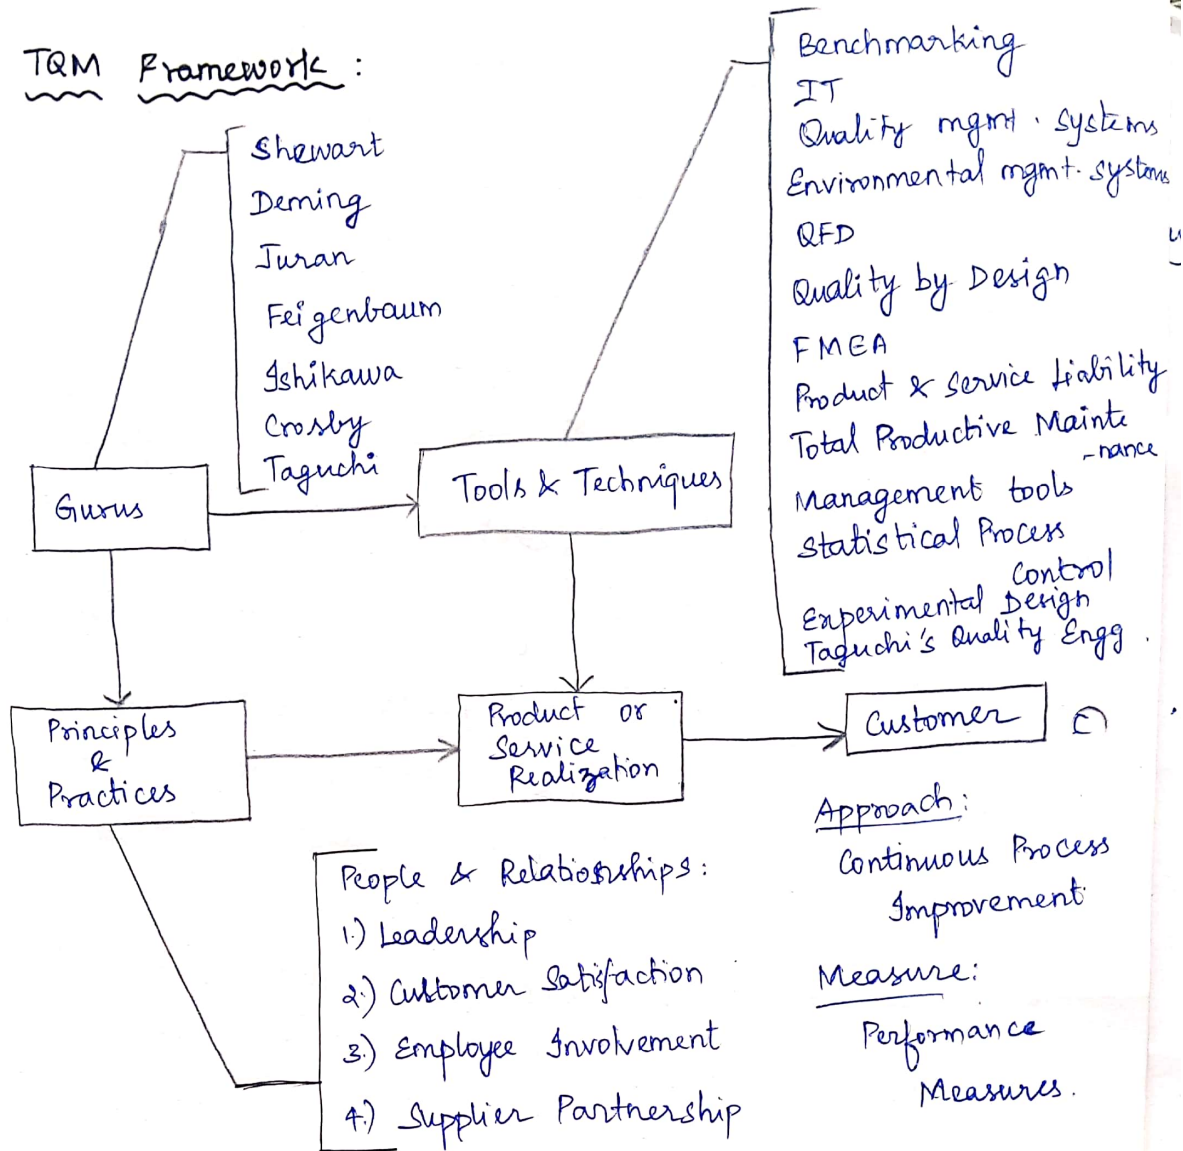 TQM Framework :
Shewart
Deming
Juran
Feigenbaum
Ishikawa
Crosby
Taguchi
Gurus
Tools & Techniques
Benchmarking
IT
Quality mgmt. systems
Environmental mgmt. systems
QFD
Quality by Design
FMEA
Product & Service Liability
Total Productive Mainte
-nance
Management tools
Statistical Process
Control
Experimental Design
Taguchi's Quality Engg.
Principles
&
Practices
Product or
Service
Realization
Customer
People & Relationships:
1.) Leadership
2.) Customer Satisfaction
3.) Employee Involvement
4.) Supplier Partnership
Approach:
Continuous Process
Improvement
Measure:
Performance
Measures.